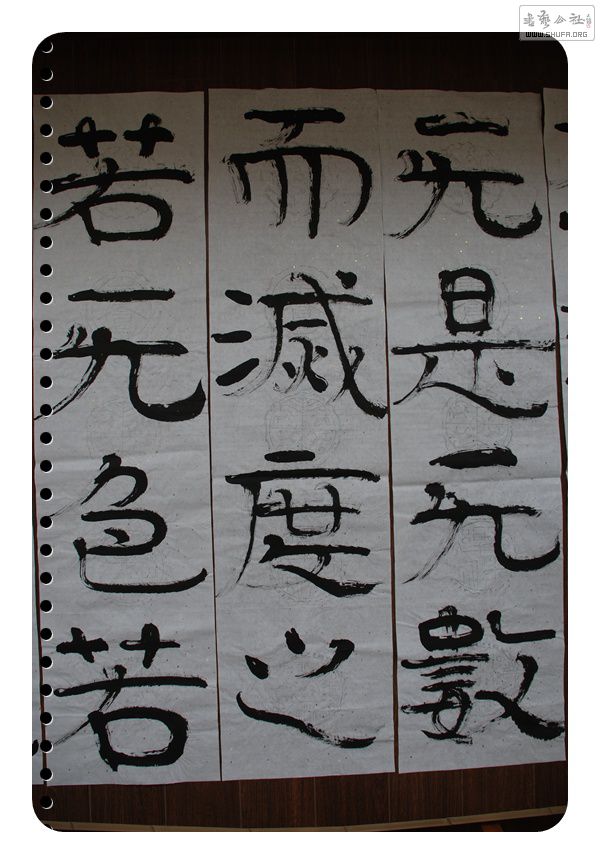 書藝公社
WWW.SHUFA.ORG
无是无數
而滅度之
若无色若